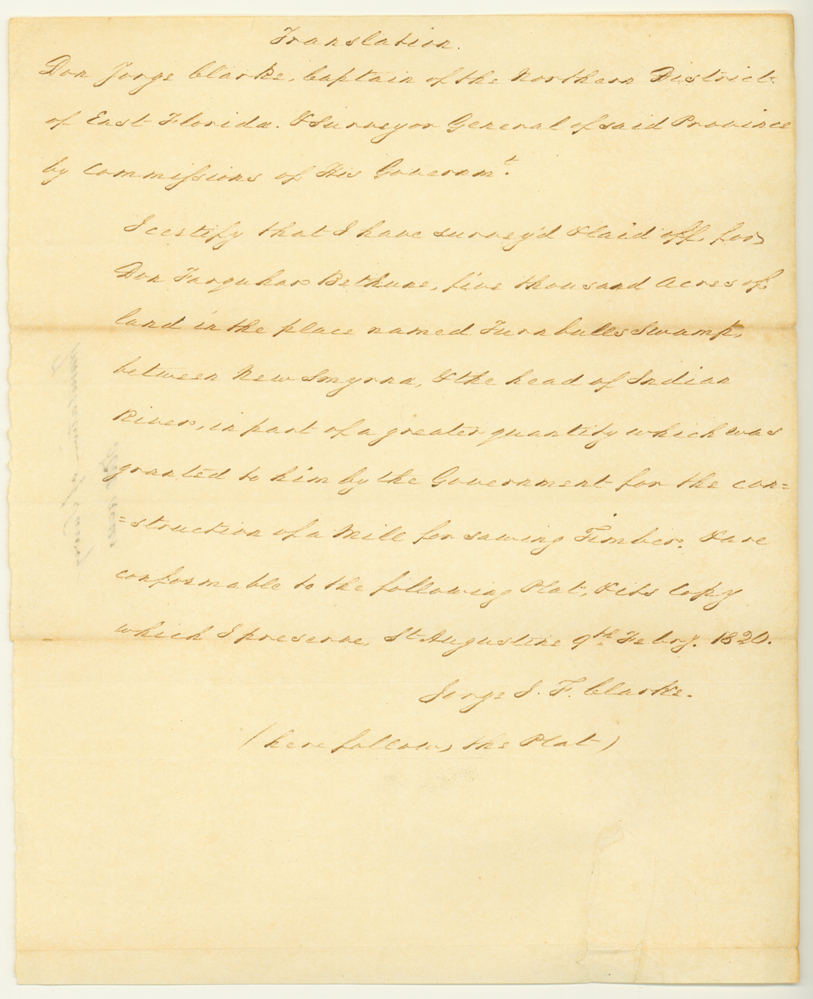 Translation.
Don Jorge Clarke, Captain of the Northern District
of East Florida. & Surveyor General of said Province
by Commissions of His Governmt.
I certify that I have survey'd & laid off, for
Don Farquhar Bethune, five thousand Acres of
land in the place named Turnbulls Swamp,
between New Smyrna, & the head of Indian
River, in part of a greater quantity which was
granted to him by the Government for the con=
=struction of a Mill for sawing Timber, & are
conformable to the following Plat, & its Copy
which I preserve. St. Augustine 9th Febry. 1820.
Jorge J. F. Clarke.
(here follows, the Plat)